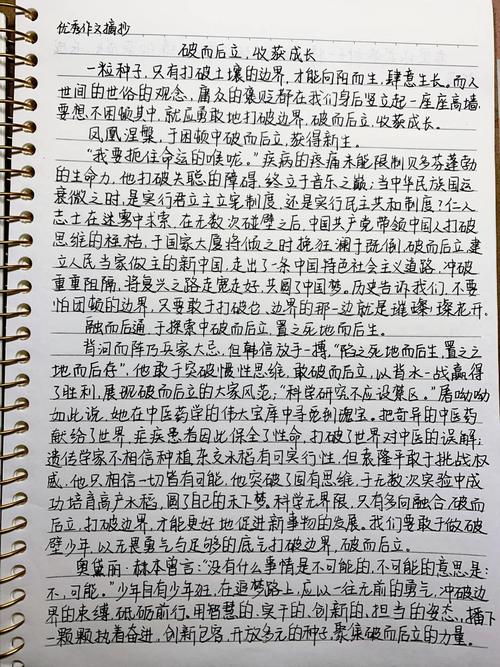 优秀作文摘抄
破而后立,收获成长
一粒种子,只有打破土壤的边界,才能向阳而生,肆意生长。而人
世间的世俗的观念,庸众的褒贬都在我们身后竖立起一座座高墙,
要想不困顿其中,就应勇敢地打破边界,破而后立,收获成长。
凤凰涅槃,于困顿中破而后立,获得新生。
“我要扼住命运的喉咙。”疾病的疼痛未能限制贝多芬蓬勃
的生命力,他打破失聪的障碍,终立于音乐之巅;当中华民族国运
衰微之时,是实行君主立宪制度,还是实行民主共和制度?仁人
志士在迷雾中求索,在无数次碰壁之后,中国共产党带领中国人打破
思维的桎梏,于国家大厦将倾之时挽狂澜于既倒,破而后立,建
立人民当家做主的新中国,走出了一条中国特色社会主义道路,冲破
重重阻隔,将复兴之路走宽走好,共圆了中国梦。历史告诉我们,不要
怕困顿的边界,只要敢于打破它,边界的那一边就是璀璨琛花开。
融而后通,于探索中破而后立,置之死地而后生。
背河而阵乃兵家大忌,但韩信放手一搏,“陷之死地而后生,置之亡
地而后存”,他敢于突破惯性思维,敢破而后立,以背水一战赢得
了胜利,展现破而后立的大家风范;“科学研究不应设禁区。”屠呦呦
如此说,她在中医药学的伟大宝库中寻觅到瑰宝。把奇异的中医药
献给了世界,疟疾患者因此保全了性命,打破了世界对中医的误解;
遗传学家不相信种植杂交水稻有可实行性,但袁隆平敢于挑战权
威,他只相信一切皆有可能,他突破了固有思维,于无数次实验中成
功培育高产水稻,圆了自己的禾下梦。科学无界限,只有多向融合,破而
后立,打破边界,才能更好地促进新事物的发展,我们要敢于做破
壁少年,以无畏勇气与足够的底气打破边界,破而后立。
奥黛丽·赫本曾言:“没有什么事情是不可能的,不可能的意思是:
不,可能。”少年自有少年狂,在追梦路上,应以一往无前的勇气,冲破边
界的束缚,砥砺前行。用智慧的,实干的,创新的,担当的姿态,播下
一颗颗执着奋进,创新包容,开放多元的种子,聚集破而后立的力量。